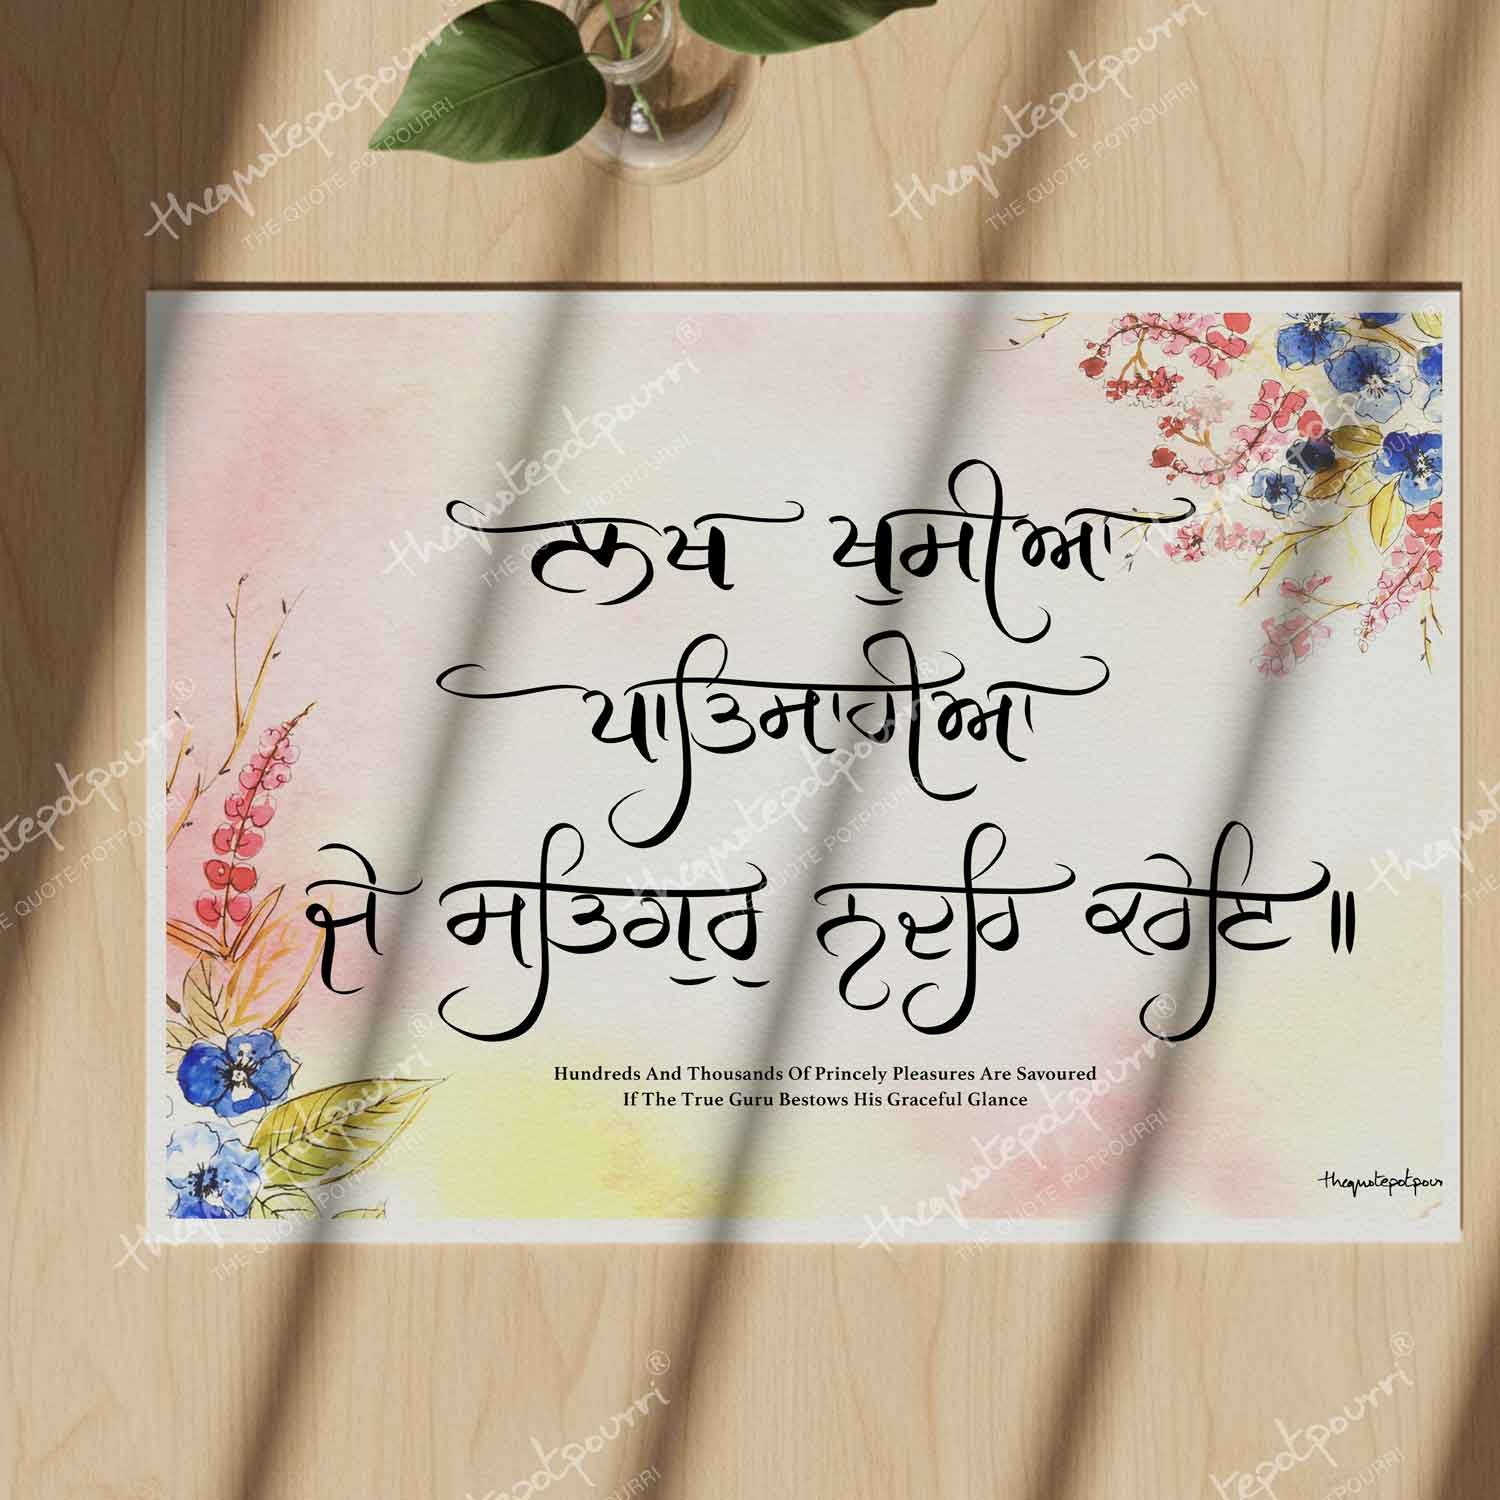 ਲਖ ਖੁਸੀਆ
ਪਾਤਿਸਾਹੀਆ
ਜੇ ਸਤਿਗੁਰੁ ਨਦਰਿ ਕਰੇਇ ॥
Hundreds And Thousands Of Princely Pleasures Are Savoured
If The True Guru Bestows His Graceful Glance
thequotepotpour
thequotepotpourri®
THE QUOTE POTPOURRI